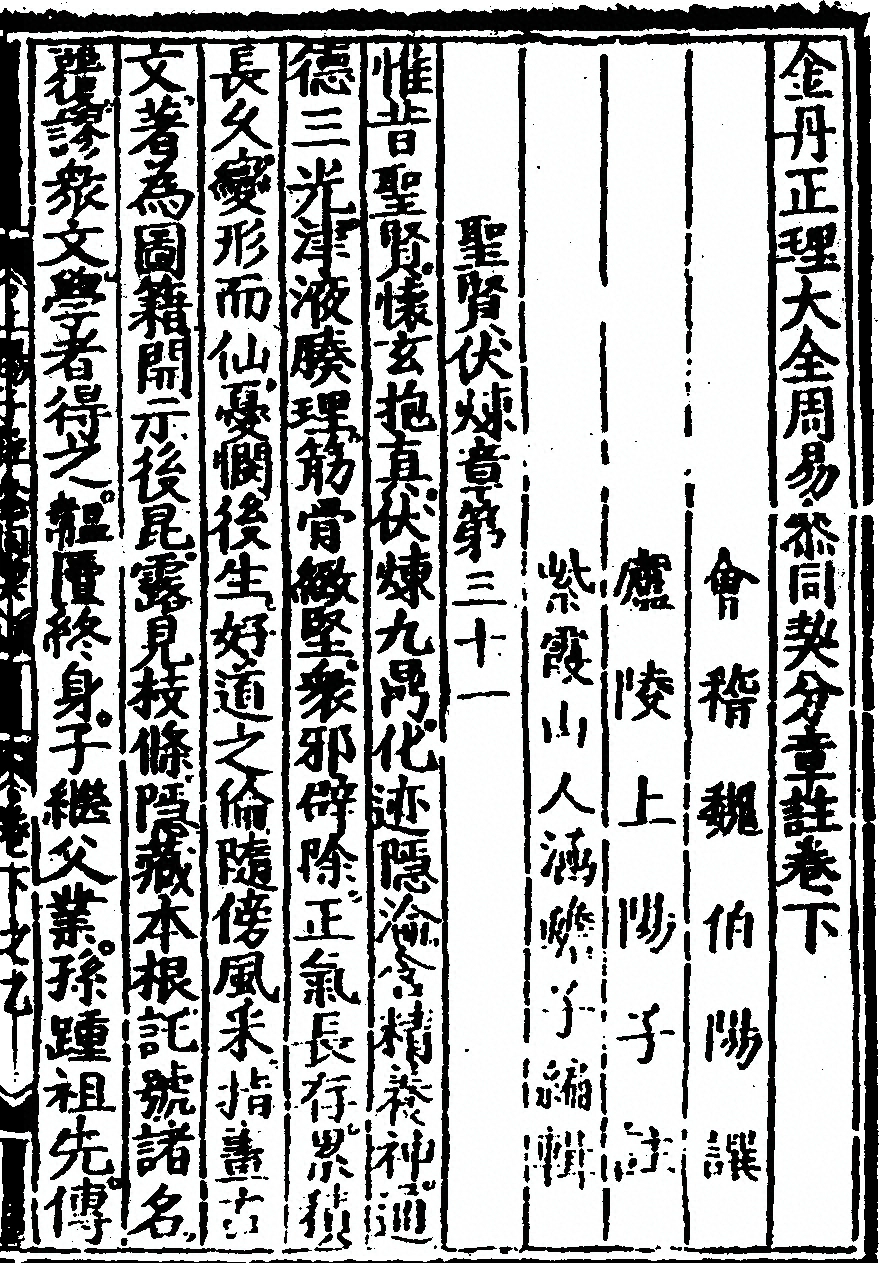 金丹正理大全周易叅同契分章註卷下
會稽魏伯陽譔
廬陵上陽子註
紫霞山人涵蟾子編輯
聖賢伏煉章第三十一
惟昔聖賢懷玄抱真伏煉九鼎化迹隱淪含精養神通
德三光津液腠理筋骨緻堅衆邪辟除正氣長存累積
長久變形而仙憂憫後生好道之倫隨傍風采指畫古
文著為圖籍開示後昆露見枝條隱藏本根託號諸名
覆謬衆文學者得之韞匵終身子繼父業孫踵祖先傳